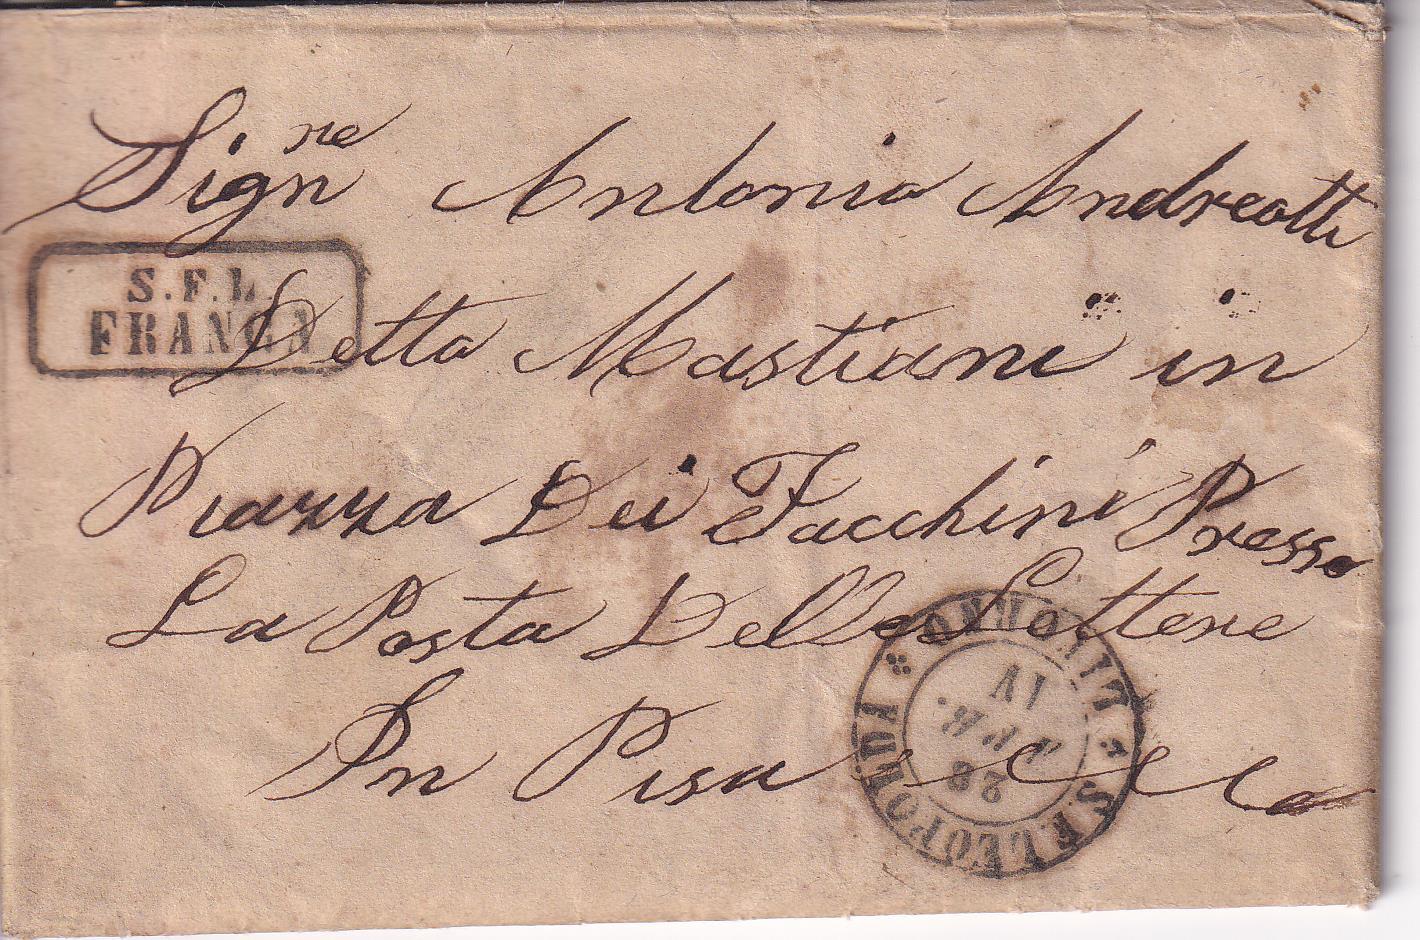 Sign.re Antonia Andreotti
S.F.L.
FRANCA
Detta Mastiani in
Piazza Dei Facchini Presso
La Posta Delle Lettere
In Pisa
LIVORNO * S.F. LEOPOLDA *
28
APR.
IV